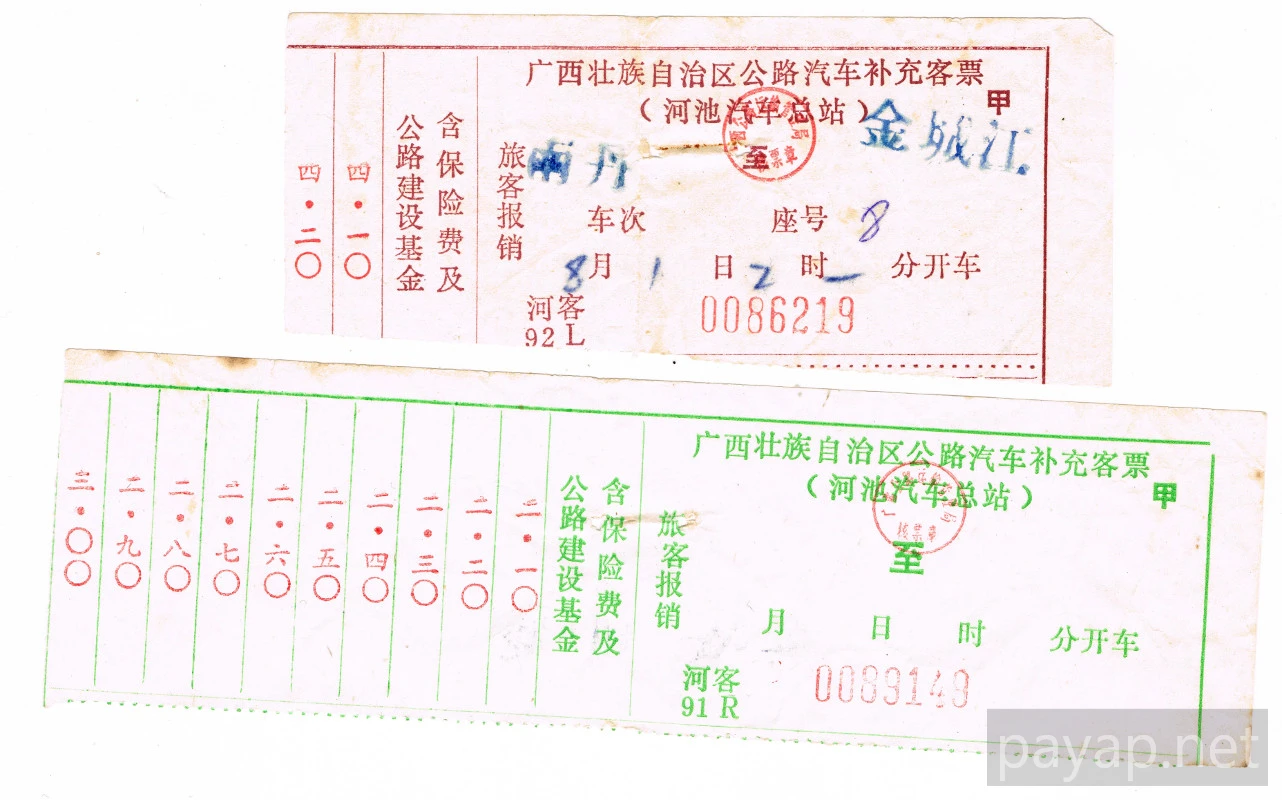 广西壮族自治区公路汽车补充客票
（河池汽车总站）
甲
金城江
至
南丹
旅客报销
含保险费及
公路建设基金
四·一〇
四·二〇
车次
座号 8
8月1日2时 分开车
河客
92 L
0086219
广西壮族自治区公路汽车补充客票
（河池汽车总站）
甲
至
旅客报销
含保险费及
公路建设基金
二·一〇
二·二〇
二·三〇
二·四〇
二·五〇
二·六〇
二·七〇
二·八〇
二·九〇
三·〇〇
月 日 时 分开车
河客
91 R
0089149
payap.net